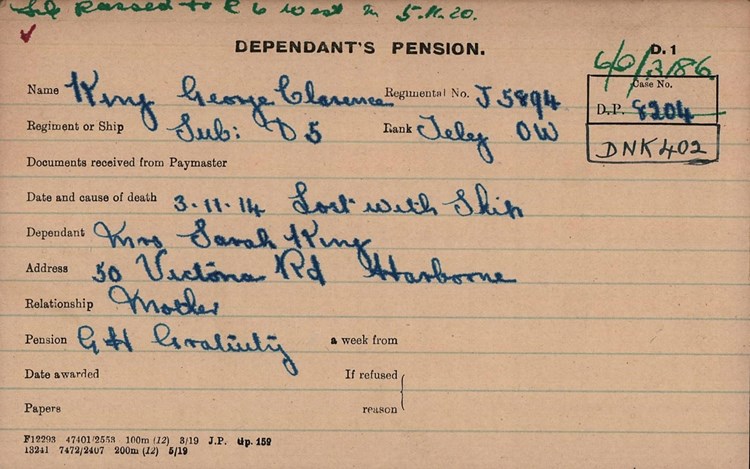 passed to R 6 West 5.11.20.
DEPENDANT'S PENSION.
D. 1
60/3/86
Name King George Clarence Regimental No. J5894
Case No.
D.P. 8204
Regiment or Ship Sub: D5 Rank Teleg OW
DNK402
Documents received from Paymaster
Date and cause of death 3.11.14 Lost with Ship
Dependant Mrs Sarah King
Address 50 Victoria Rd Harborne
Relationship Mother
Pension Gratuity a week from
Date awarded If refused
Papers reason
F12293 47401/2553 100m (12) 3/19 J.P. Gp. 159
13241 7472/2407 200m (12) 5/19